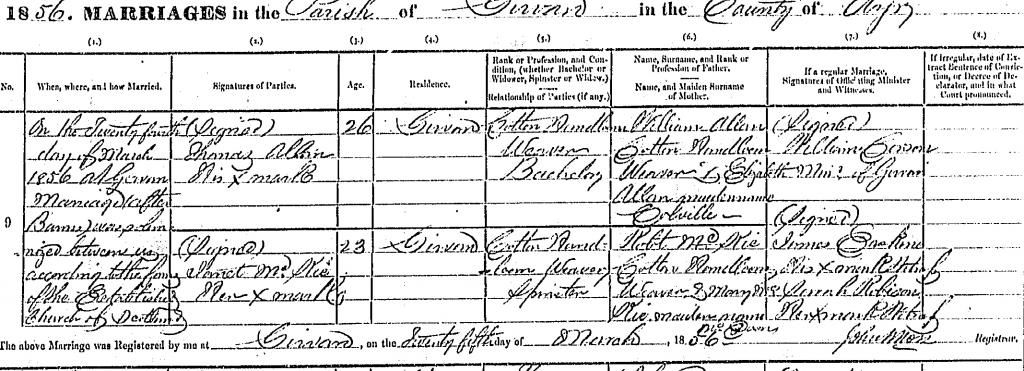 1856. MARRIAGES in the Parish of Girvan in the County of Ayr
(1.) (2.) (3.) (4.) (5.) (6.) (7.) (8.)
No.
When, where, and how Married.
Signatures of Parties.
Age.
Residence.
Rank or Profession, and Condition, (whether Bachelor or Widower, Spinster or Widow.)
Relationship of Parties (if any.)
Name, Surname, and Rank or Profession of Father.
Name, and Maiden Surname of Mother.
If a regular Marriage, Signatures of Officiating Minister and Witnesses.
If Irregular, date of Extract Sentence of Conviction, or Decree of Declarator, and in what Court pronounced.
9
On the Twenty fourth
day of March
1856 at Girvan
Marriage (after
Banns) was solem
nized between us
according to the form
of the Established
Church of Scotland
(Signed)
Thomas Allan
His x mark
(Signed)
Janet Mc Kie
Her x mark
26
23
Girvan
Girvan
Cotton Handloom
Weaver
Bachelor
Cotton Hand-
loom Weaver
Spinster
William Allan
Cotton Handloom
Weaver & Elizabeth
Allan maiden name
Colville
Robt. Mc Kie
Cotton Handloom
Weaver & Mary Mc
Kie maiden name
(Signed)
William
Min. of Girvan
(Signed)
James Erskine
His x mark Witness
Sarah Robison
Her x mark Witness
The above Marriage was Registered by me at Girvan, on the Twenty fifth day of March, 1856 Registrar.